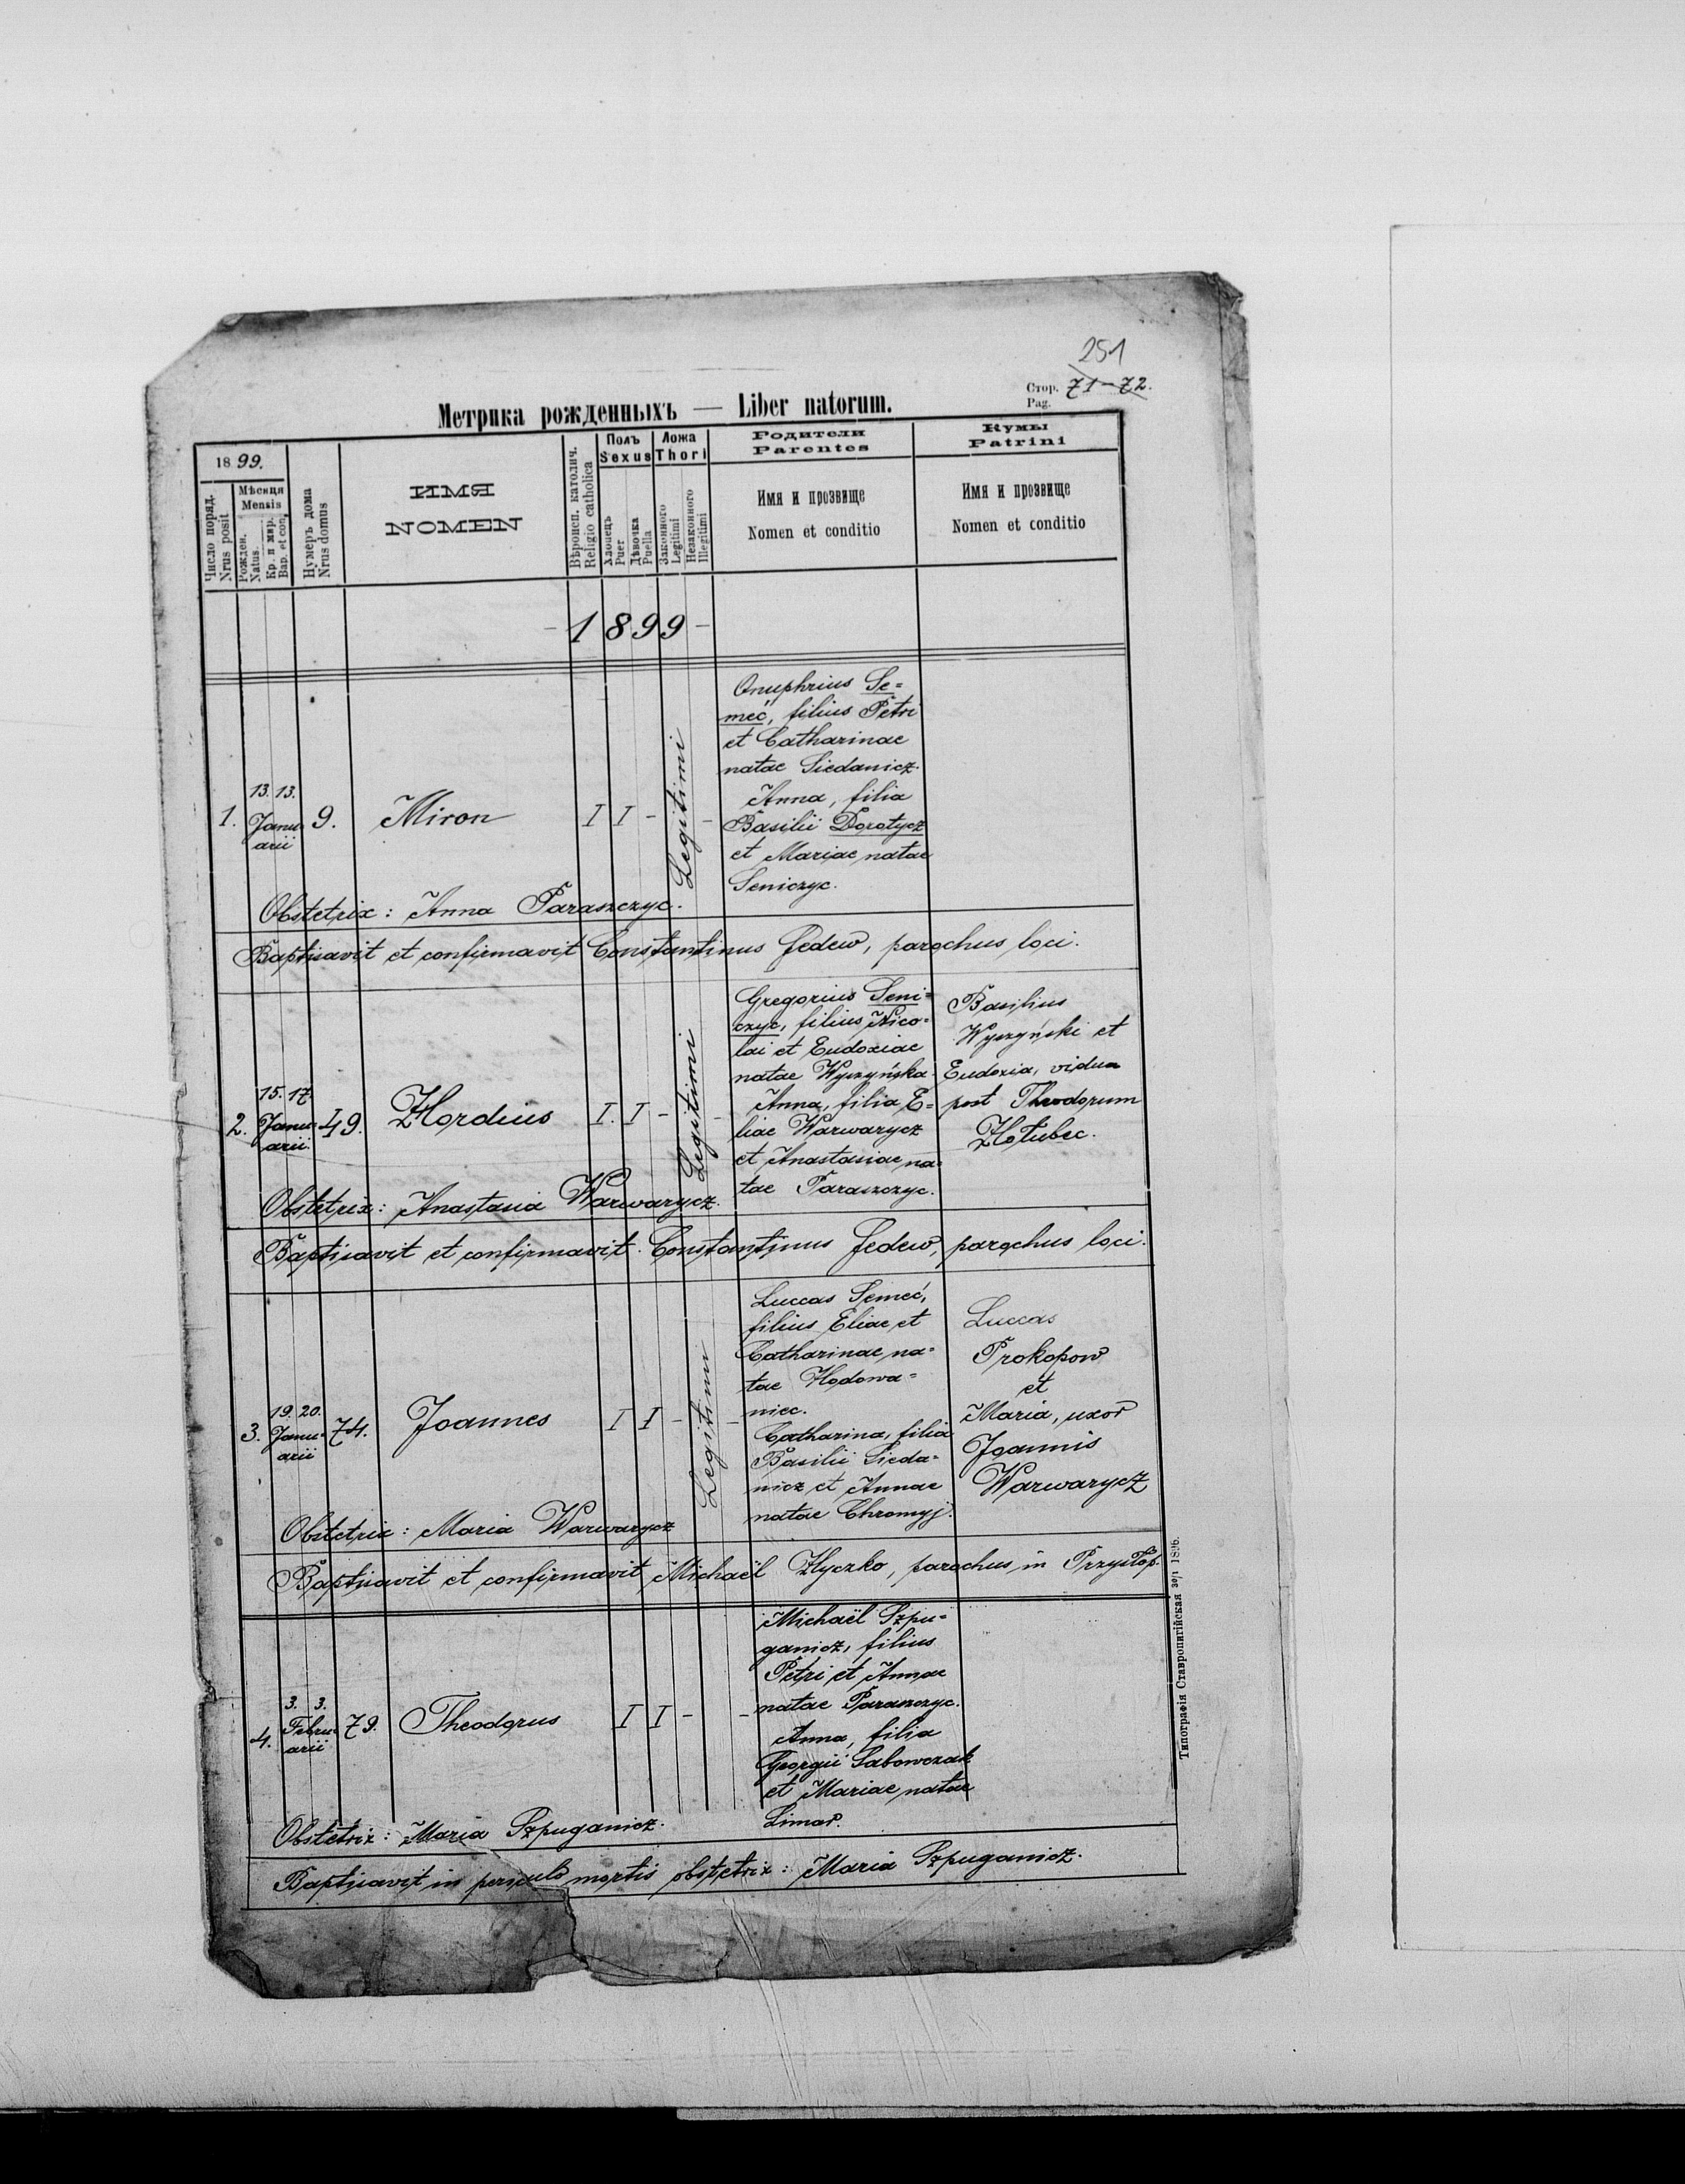 251
Стор. 71-72.
Pag.
Метрика рожденныхъ — Liber natorum.
1899.
Число поряд.
Nrus posit
Мѣсяця
Mensis
Рожден.
Natus.
Кр. и мѵр.
Bap. et con.
Нумеръ дома
Nrus domus
ИМЯ
NOMEN
Вѣроисп. католич.
Religio catholica
Полъ
Sexus
Хлопецъ
Puer
Дѣвочка
Puella
Ложа
Thori
Законного
Legitimi
Незаконного
Illegitimi
Родители
Parentes
Имя и прозвище
Nomen et conditio
Кумы
Patrini
Имя и прозвище
Nomen et conditio
- 1899 -
1.
13. 13.
Janu-
arii
9.
Miron
I I - Legitimi -
Onuphrius Se=
meć, filius Petri
et Catharinae
natae Siedanicz.
Anna, filia
Basilii Dorotycz
et Mariae natae
Seniczyc.
Obstetrix: Anna Paraszczyc.
Baptisavit et confirmavit Constantinus Fedew, parochus loci.
2.
15. 17.
Janu-
arii.
49.
Hordius
I. I - Legitimi -
Gregorius Seni=
czyc, filius Nico=
lai et Eudoxiae
natae Wyszyńska.
Anna, filia E=
liae Warwarycz
et Anastasiae na=
tae Paraszczyc.
Basilius
Wyszyński et
Eudoxia, vidua
post Theodorum
Hołubec.
Obstetrix: Anastasia Warwarycz.
Baptisavit et confirmavit Constantinus Fedew, parochus loci.
3.
19. 20.
Janu-
arii
74.
Joannes
I I - Legitimi -
Luccas Semeć,
filius Eliae et
Catharinae na=
tae Hodowa=
niec.
Catharina, filia
Basilii Sieda=
nicz et Annae
natae Chromyj.
Luccas
Prokopow
et
Maria, uxor
Joannis
Warwarycz
Obstetrix: Maria Warwarycz
Baptisavit et confirmavit Michaël Hyczko, parochus in Przysłop.
4.
3. 3.
Febru-
arii
79.
Theodorus
I I - -
Michaël Szpu=
ganicz, filius
Petri et Annae
natae Paraszczyc.
Anna, filia
Georgii Sabowczak
et Mariae natae
Limar.
Obstetrix: Maria Szpuganicz.
Baptisavit in periculo mortis obstetrix: Maria Szpuganicz.
Типографія Ставропигійская 30/1 1896.